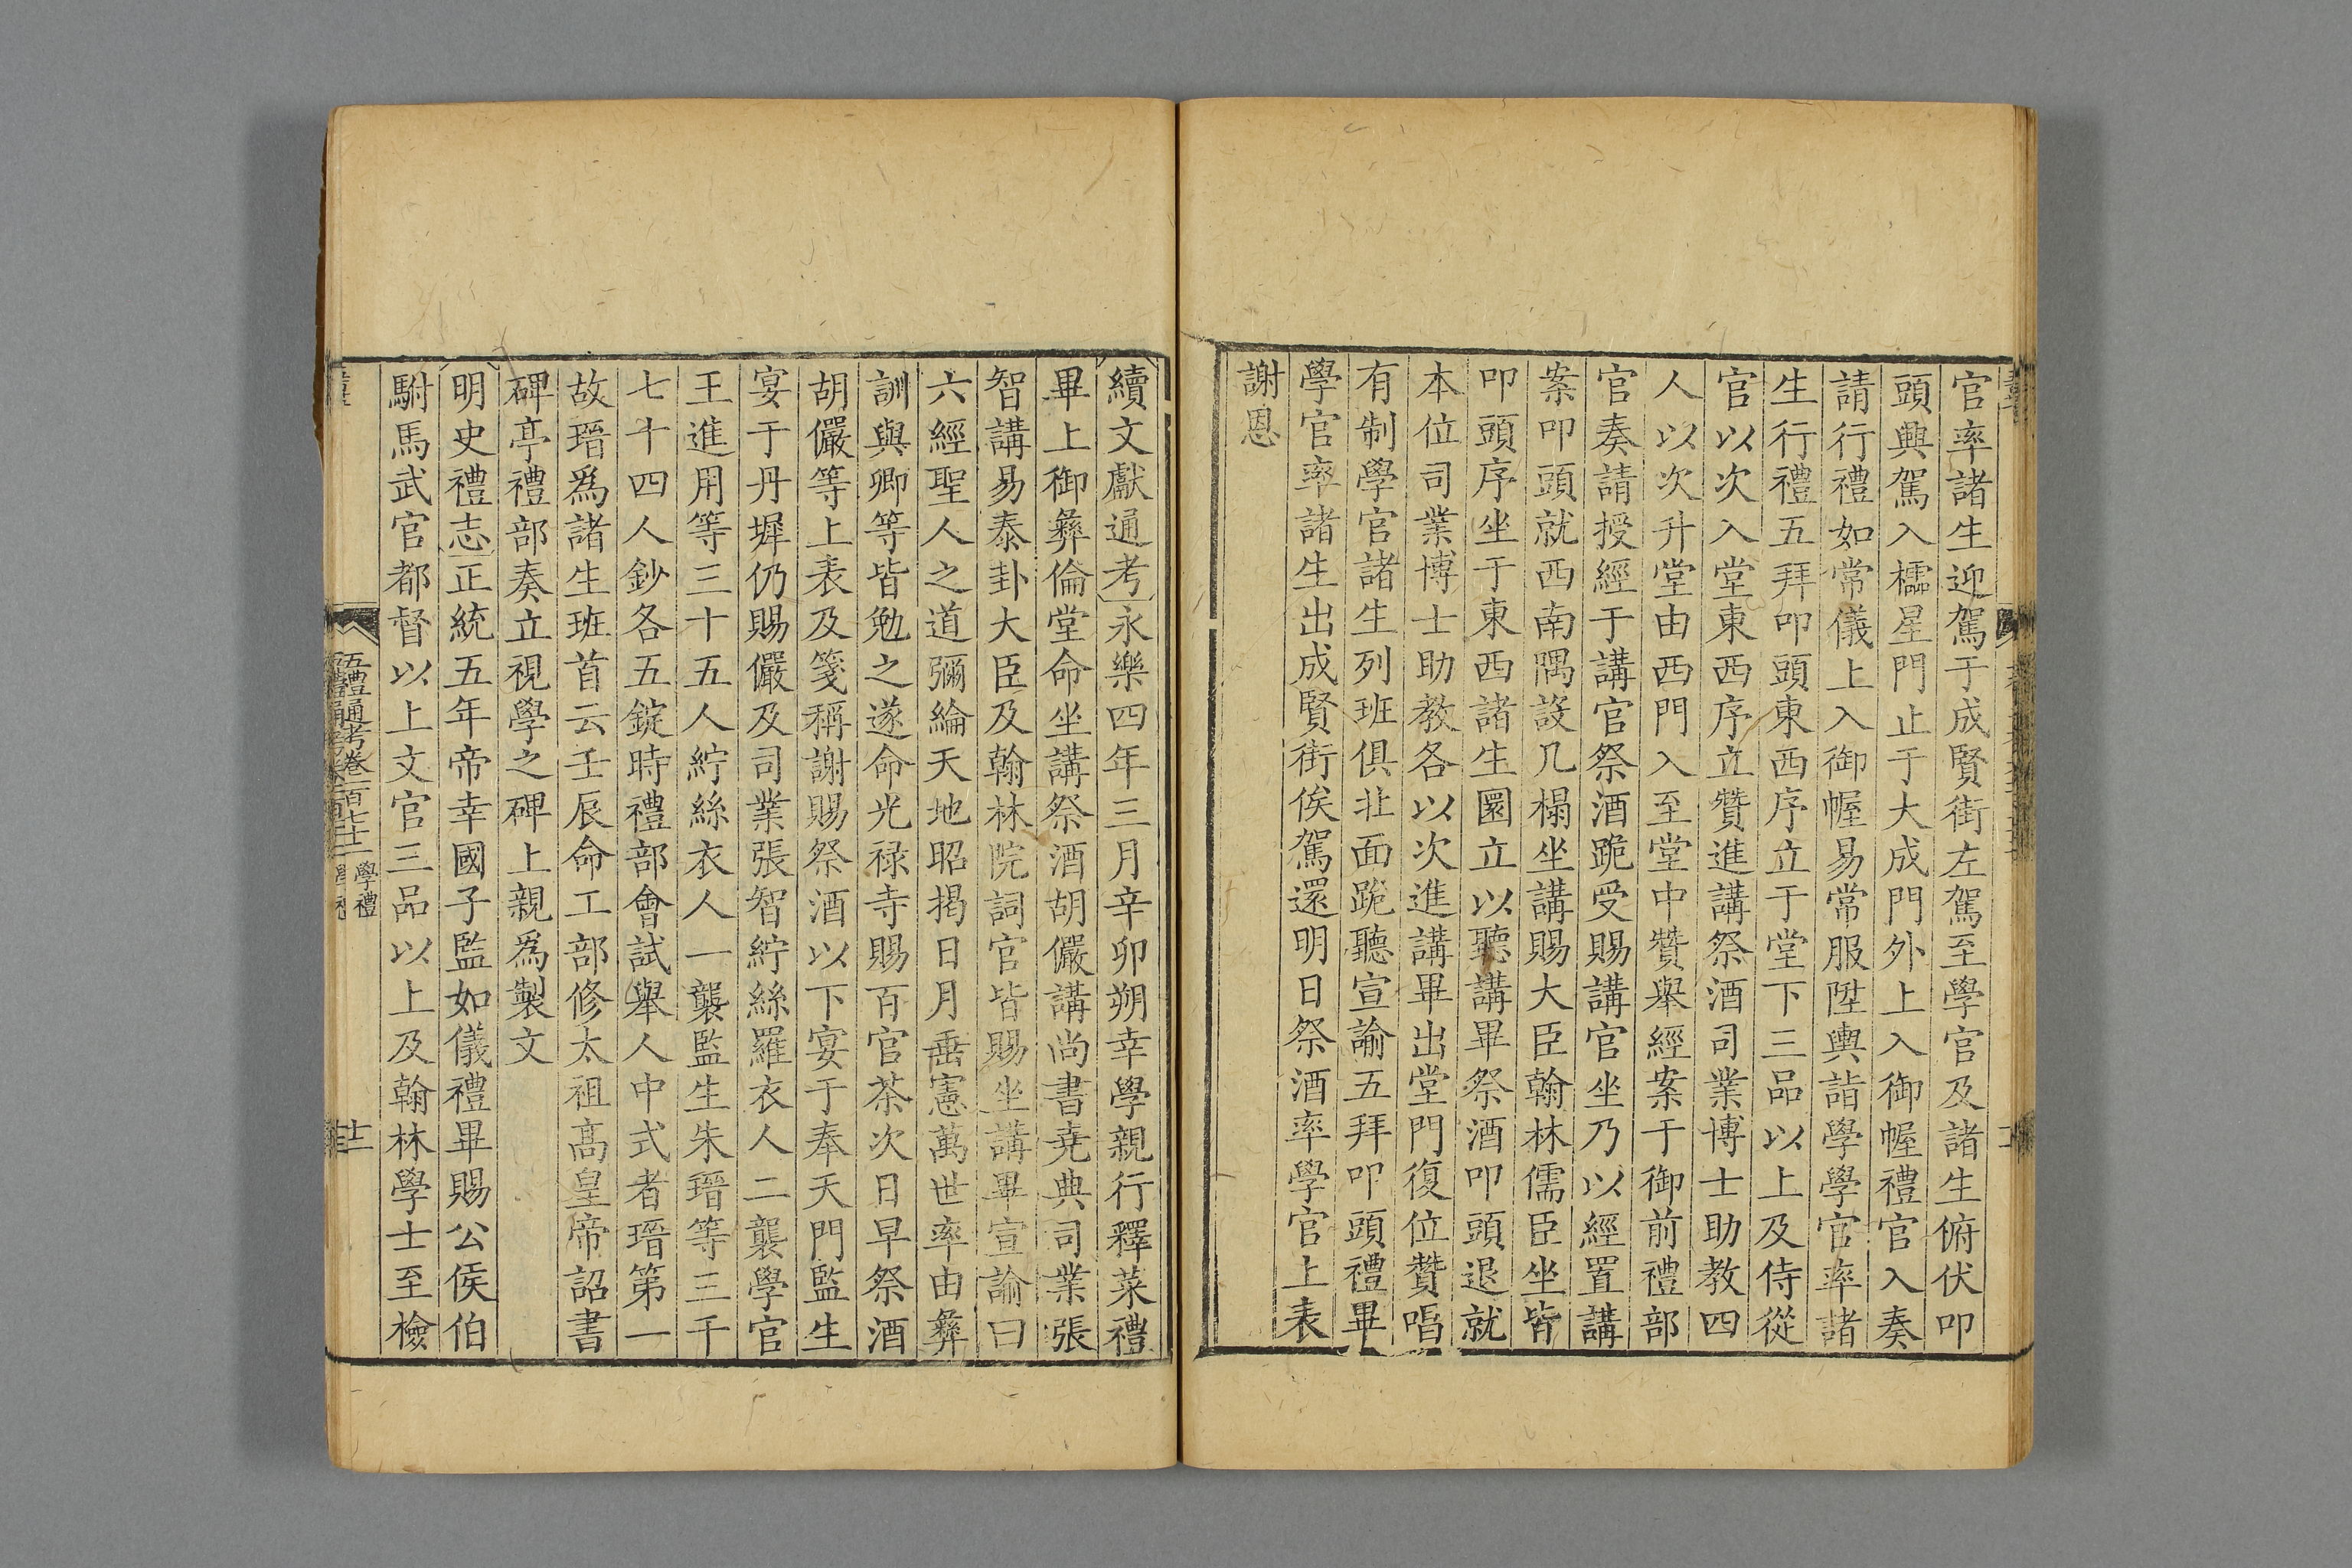 官率諸生迎駕于成賢街左駕至學官及諸生俯伏叩
頭興駕入櫺星門止于大成門外上入御幄禮官入奏
請行禮如常儀上入御幄易常服陞輿詣學學官率諸
生行禮五拜叩頭東西序立于堂下三品以上及侍從
官以次入堂東西序立贊進講祭酒司業博士助教四
人以次升堂由西門入至堂中贊舉經案于御前禮部
官奏請授經于講官祭酒跪受賜講官坐乃以經置講
案叩頭就西南隅設几榻坐講賜大臣翰林儒臣坐皆
叩頭序坐于東西諸生圜立以聽講畢祭酒叩頭退就
本位司業博士助教各以次進講畢出堂門復位贊唱
有制學官諸生列班俱北面跪聽宣諭五拜叩頭禮畢
學官率諸生出成賢街俟駕還明日祭酒率學官上表
謝恩
續文獻通考永樂四年三月辛卯朔幸學親行釋菜禮
畢上御彝倫堂命坐講祭酒胡儼講尚書堯典司業張
智講易泰卦大臣及翰林院詞官皆賜坐講畢宣諭曰
六經聖人之道彌綸天地昭揭日月垂憲萬世率由彝
訓與卿等皆勉之遂命光禄寺賜百官茶次日早祭酒
胡儼等上表及箋稱謝賜祭酒以下宴于奉天門監生
宴于丹墀仍賜儼及司業張智紵絲羅衣人二襲學官
王進用等三十五人紵絲衣人一襲監生朱瑨等三千
七十四人鈔各五錠時禮部會試舉人中式者瑨第一
故瑨爲諸生班首云壬辰命工部修太祖高皇帝詔書
碑亭禮部奏立視學之碑上親爲製文
明史禮志正統五年帝幸國子監如儀禮畢賜公侯伯
駙馬武官都督以上文官三品以上及翰林學士至檢
五禮通考卷一百七十二 學禮